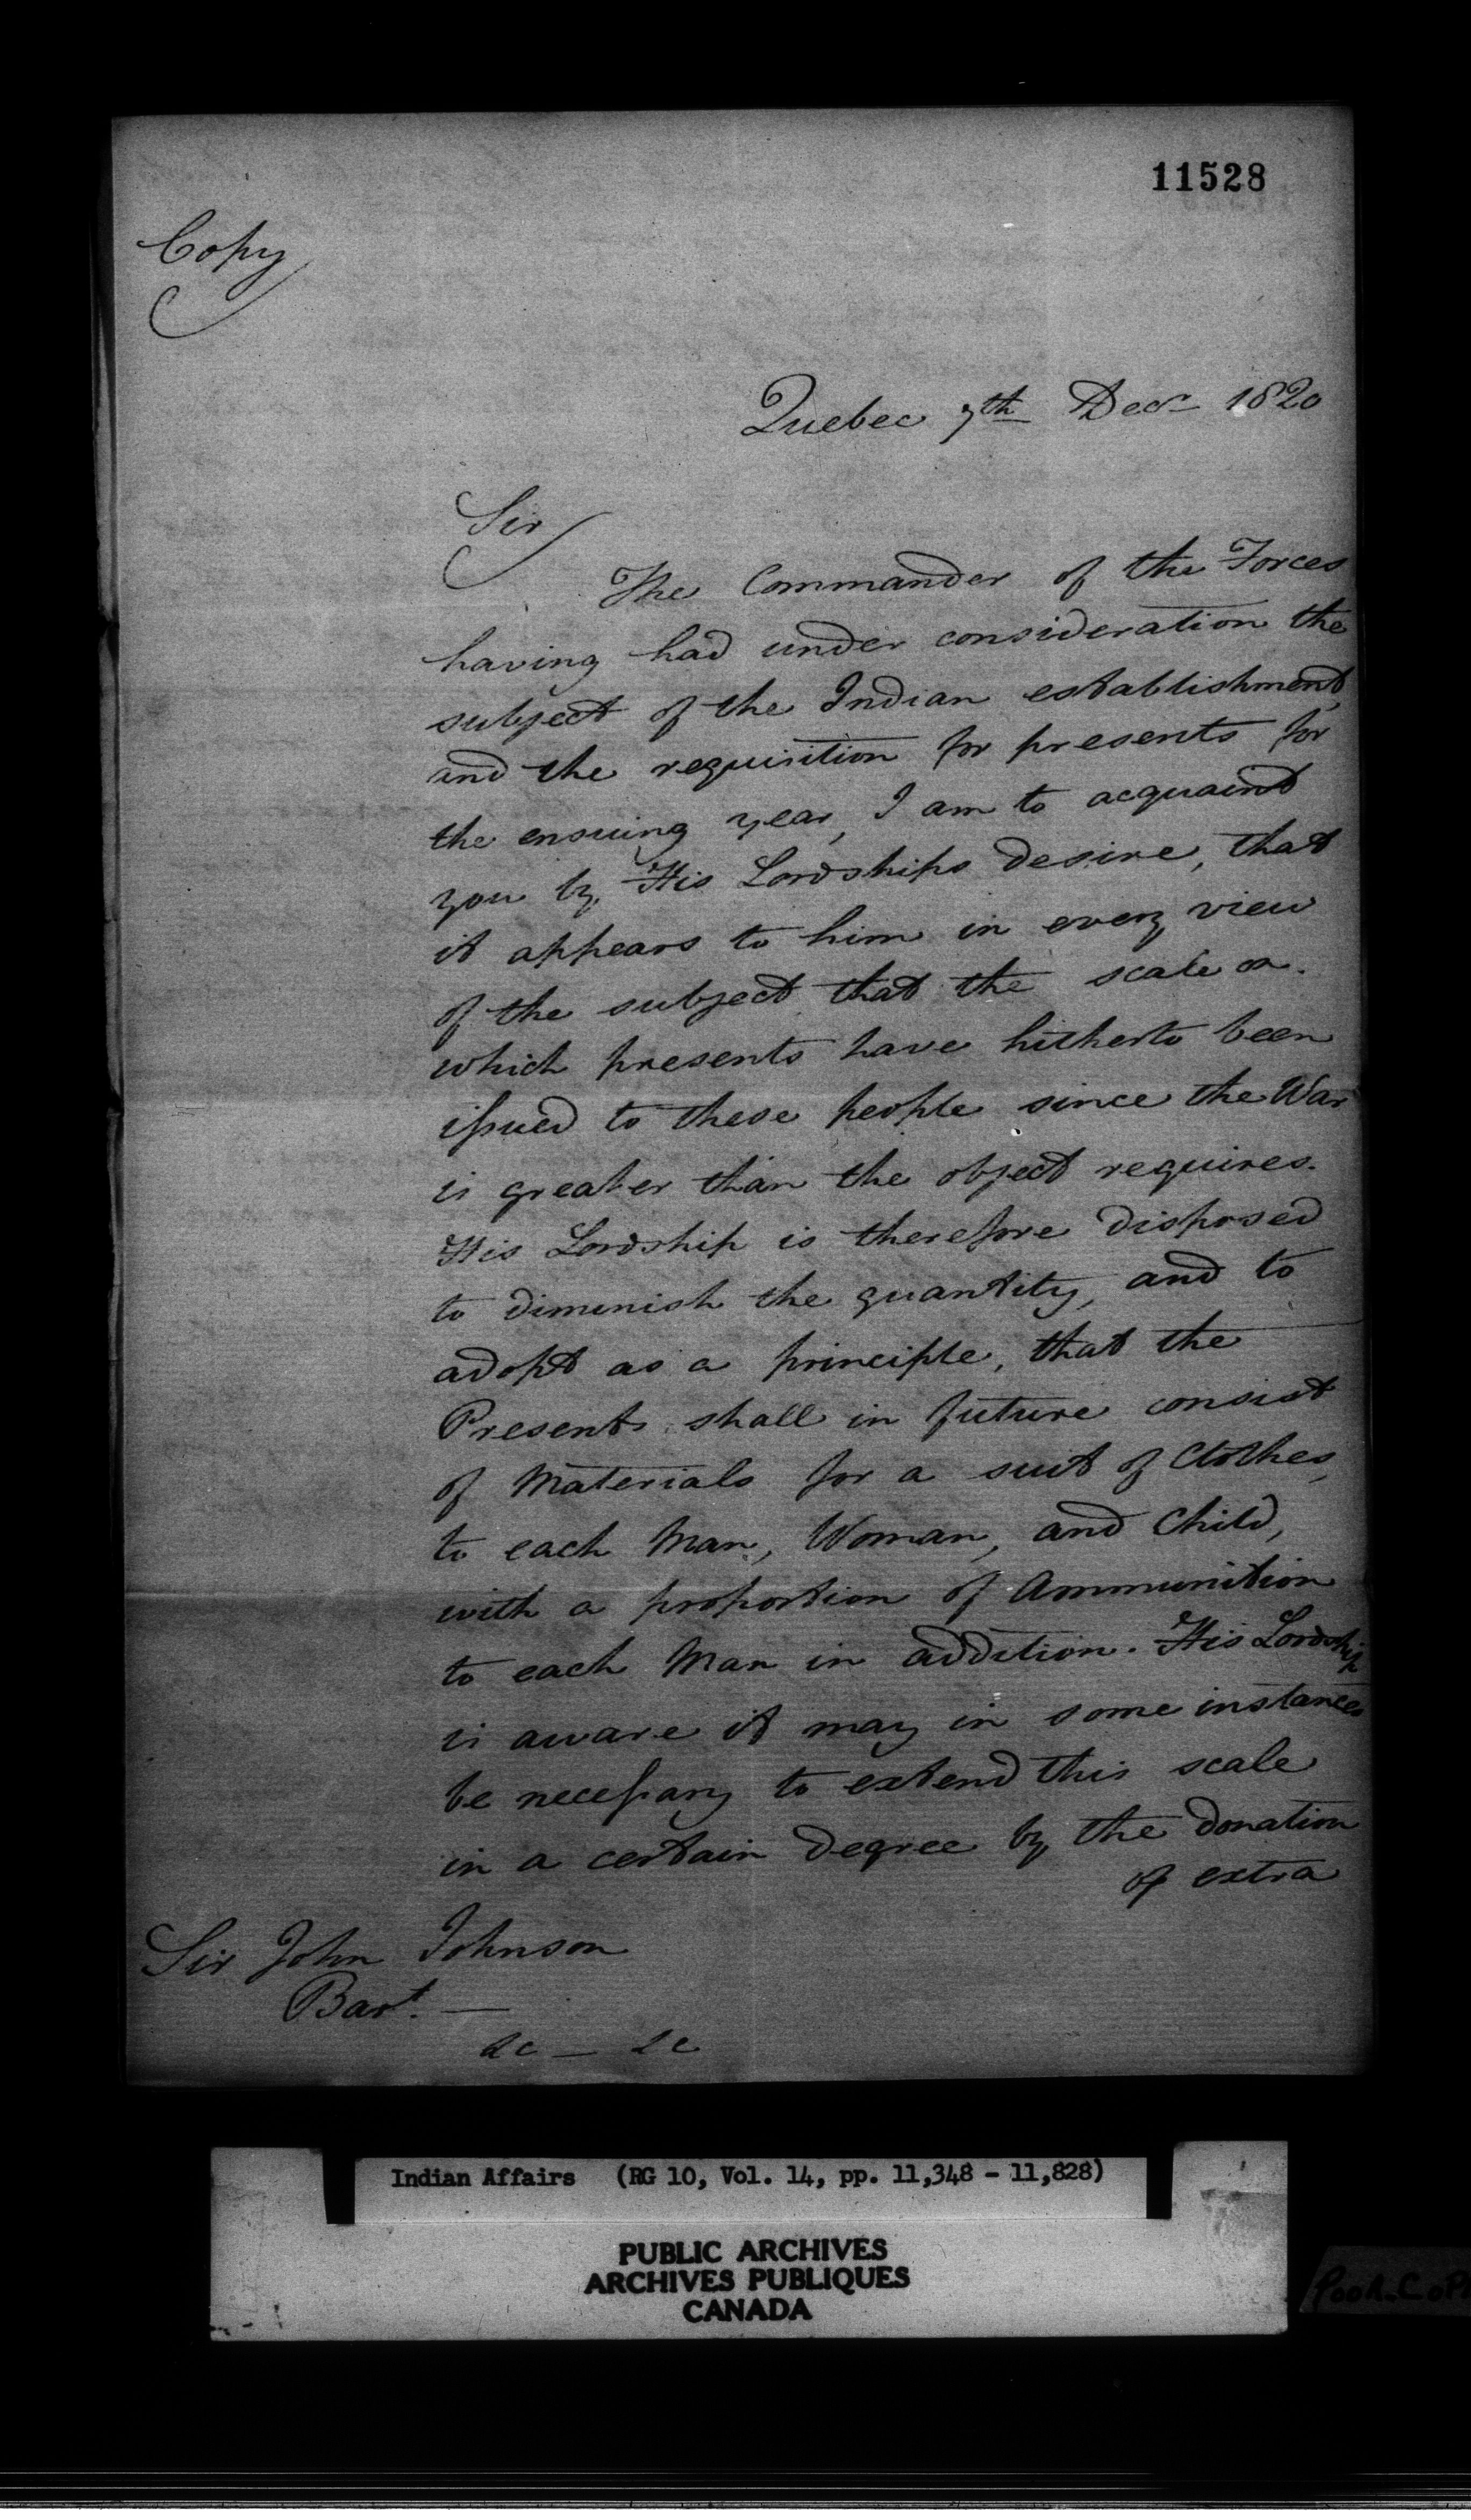 11528
Copy
Quebec 7th Decr 1820
Sir
The Commander of the Forces
having had under consideration the
subject of the Indian establishment,
and the requisition for presents for
the ensuing year, I am to acquaint
you by His Lordships desire, that
it appears to him in every view
of the subject that the scale on
which presents have hitherto been
issued to these people since the War
is greater than the object requires.
His Lordship is therefore disposed
to diminish the quantity, and to
adopt as a principle, that the
Presents shall in future consist
of Materials for a suit of Clothes,
to each Man, Woman, and Child,
with a proportion of Ammunition
to each Man in addition. His Lordship
is aware it may in some instances
be necessary to extend this scale
in a certain degree by the donation
of extra
Sir John Johnson
Bart. —
&c — &c
Indian Affairs (RG 10, Vol. 14, pp. 11,348 - 11,828)
PUBLIC ARCHIVES
ARCHIVES PUBLIQUES
CANADA